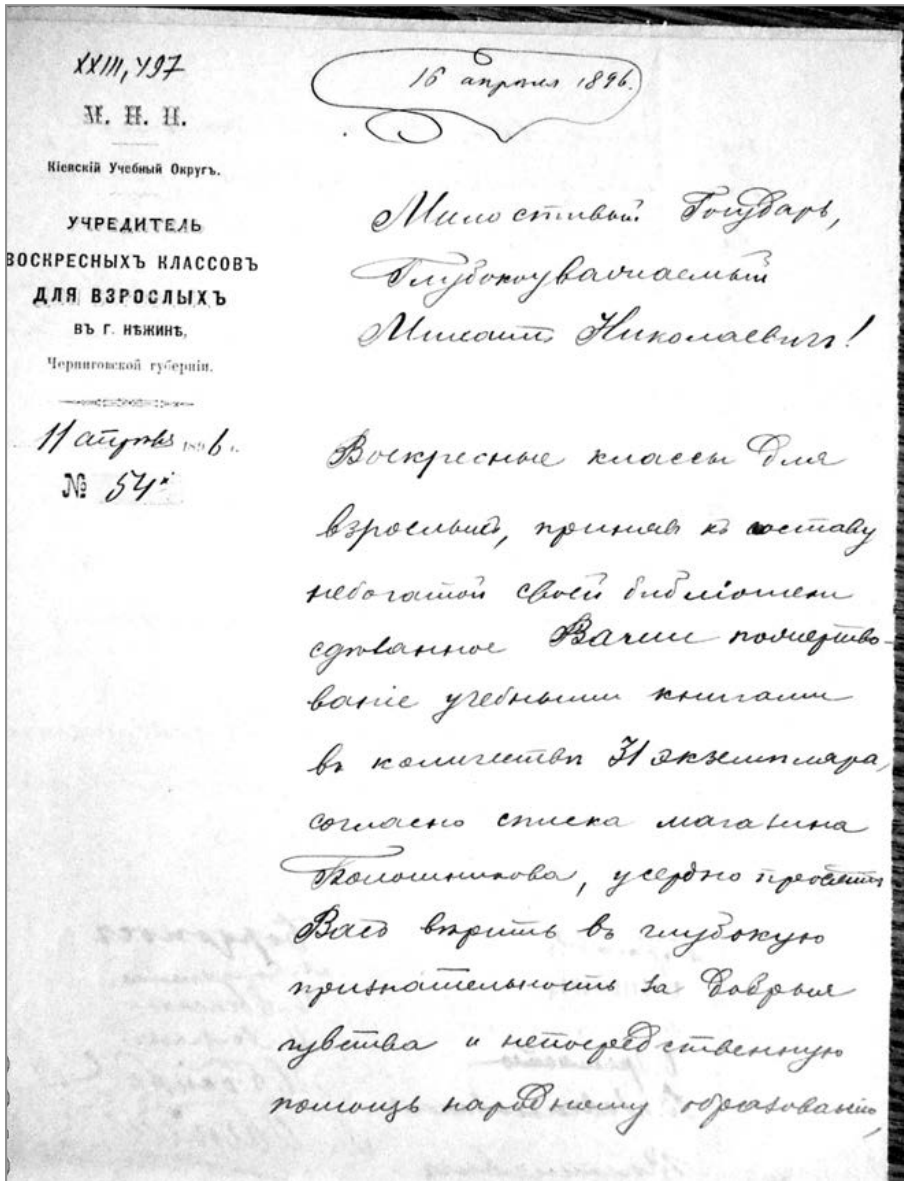 XXIII, 497
М. Н. П.
Кіевскій Учебный Округъ.
УЧРЕДИТЕЛЬ
ВОСКРЕСНЫХЪ КЛАССОВЪ
ДЛЯ ВЗРОСЛЫХЪ
ВЪ Г. НѢЖИНѢ,
Черниговской губерніи.
11 апрѣля 1896 г.
№ 54
16 апрѣля 1896.
Милостивый Государь,
Глубокоуважаемый
Михаилъ Николаевичъ!
Воскресные классы для
взрослыхъ, принявъ къ составу
небогатой своей библіотеки
сдѣланное Вами пожертво-
ваніе учебными книгами
въ количествѣ 31 экземпляра,
согласно списка магазина
Калошникова, усердно просятъ
Васъ вѣрить въ глубокую
признательность за добрыя
чувства и непосредственную
помощь народному образованію,